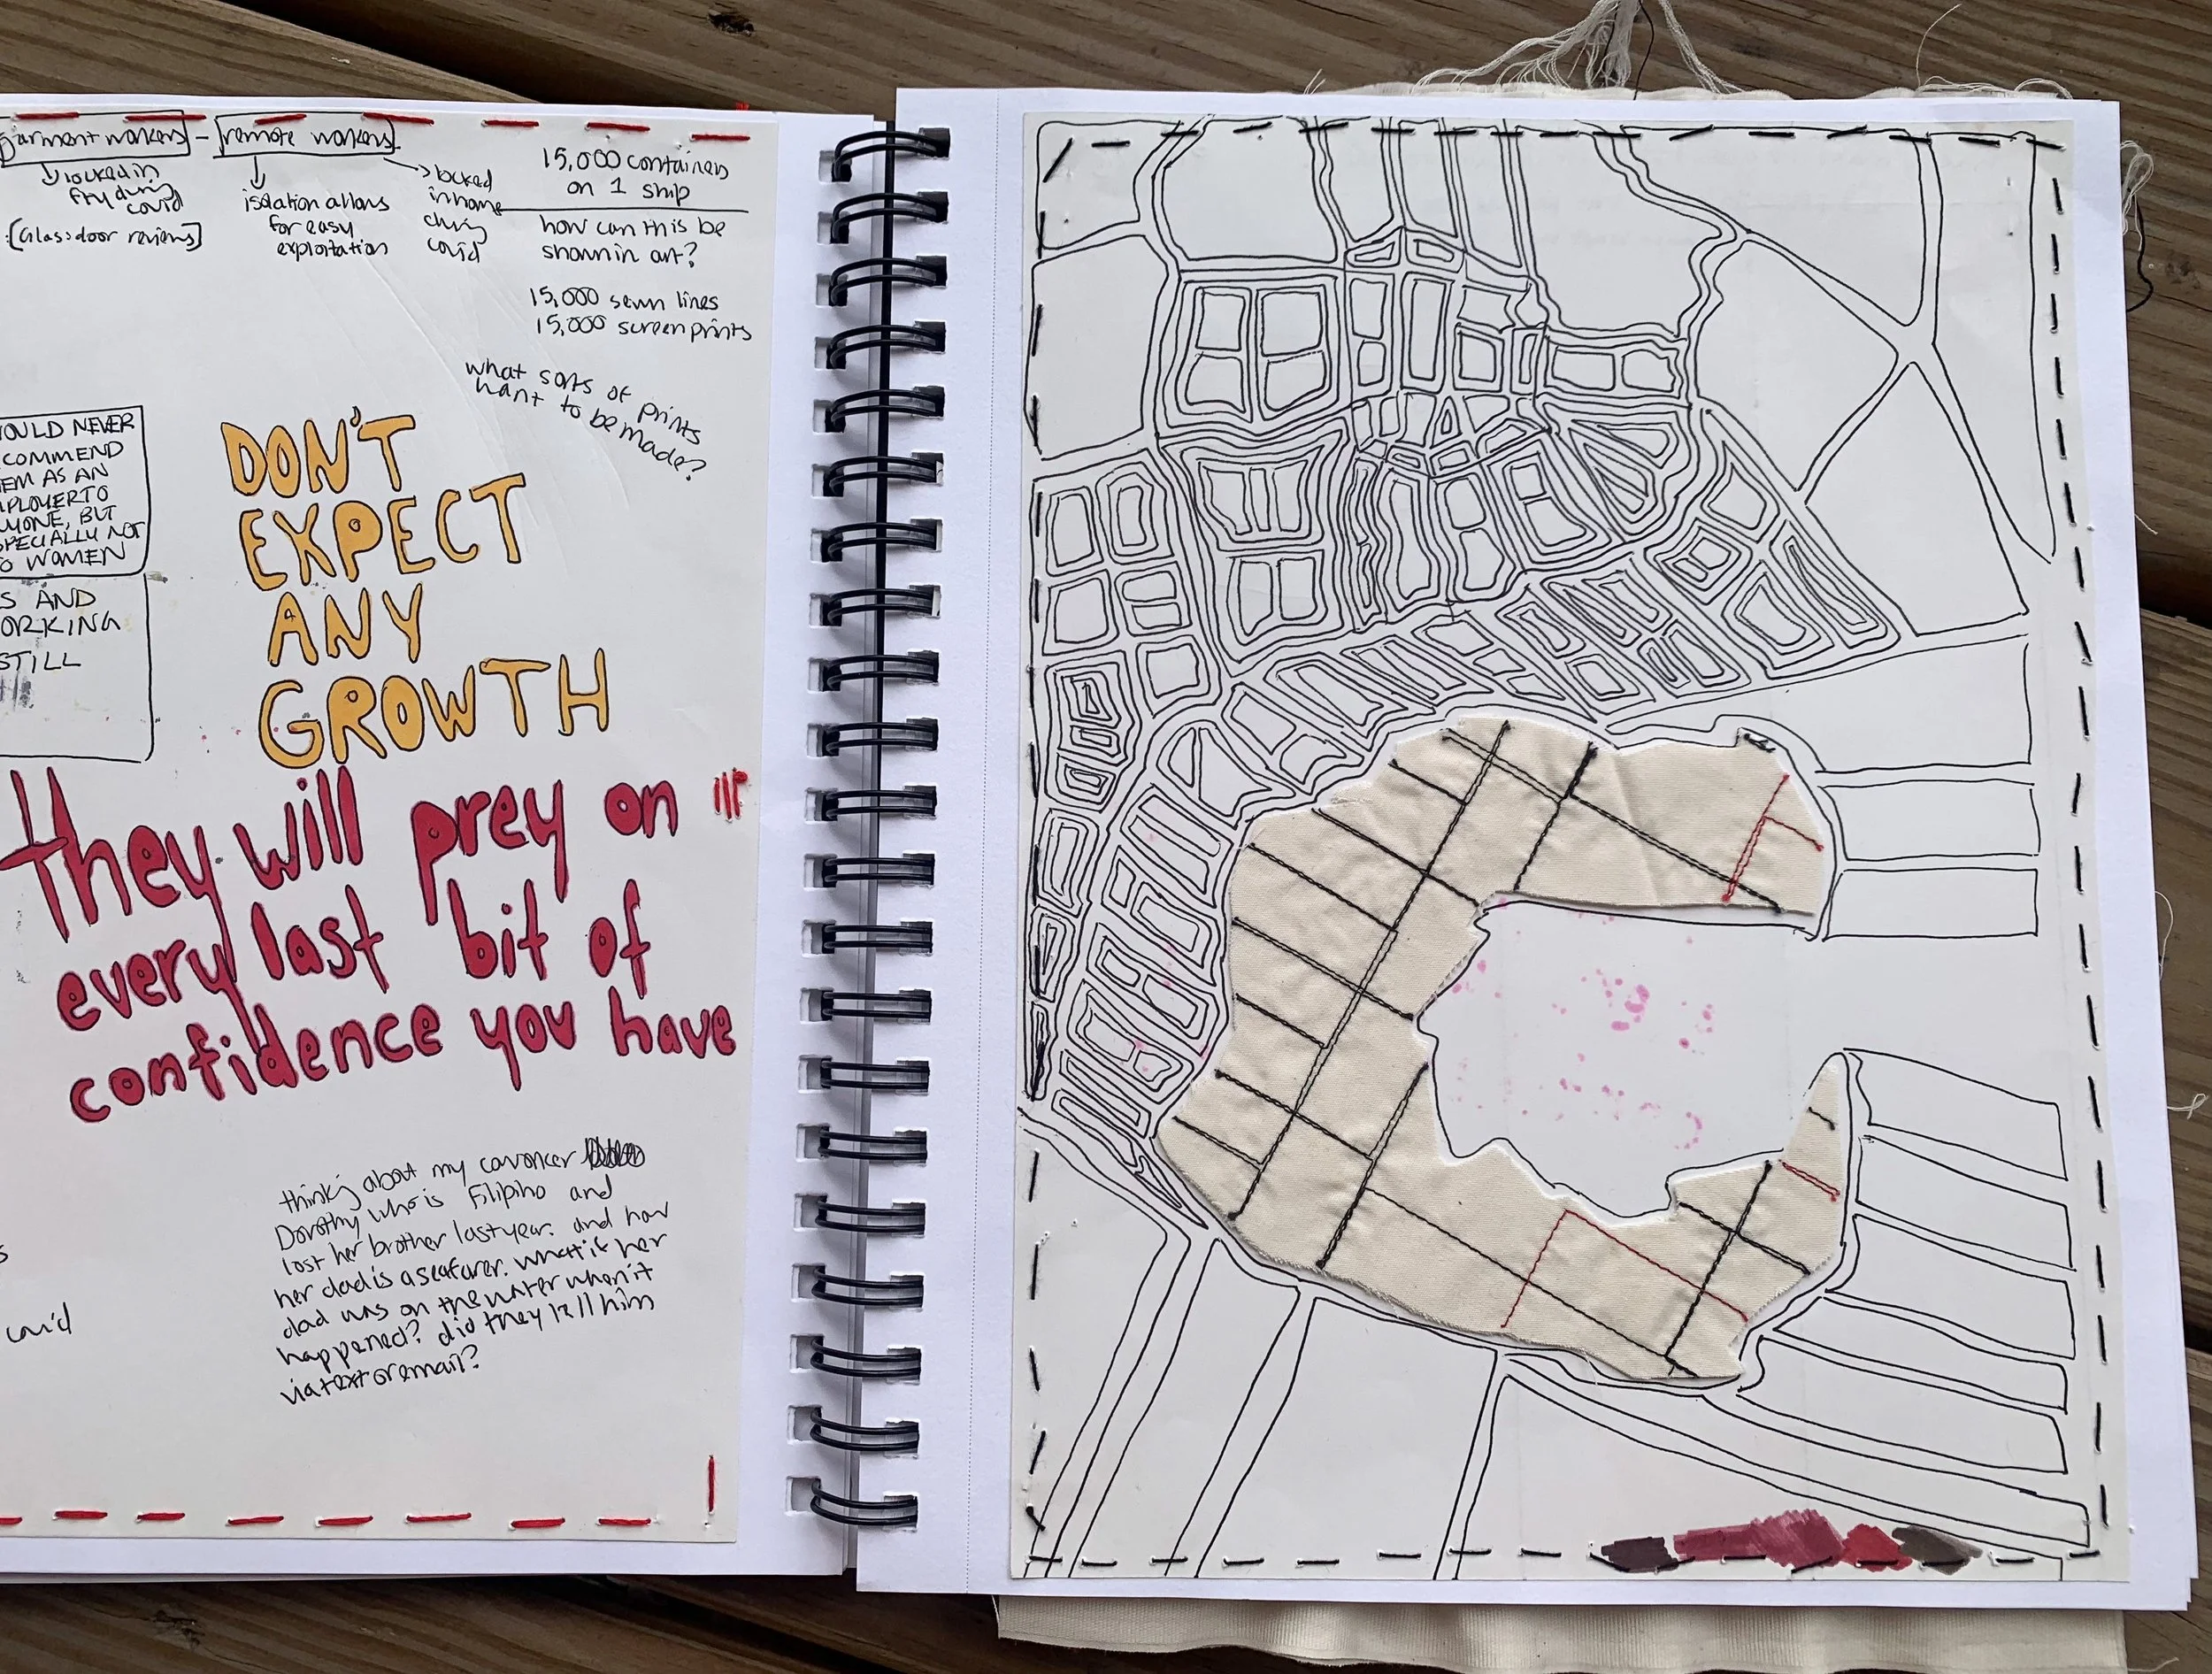 garment workers - remote workers
locked in
fty during
covid
[Glassdoor reviews]
isolation allows
for easy
exploitation
locked
in home
during
covid
15,000 containers
on 1 ship
how can this be
shown in art?
15,000 sewn lines
15,000 screenprints
what sorts of prints
want to be made?
OULD NEVER
COMMEND
EM AS AN
MPLOYER TO
YONE, BUT
SPECIALLY NOT
O WOMEN
S AND
ORKING
STILL
DON'T
EXPECT
ANY
GROWTH
they will prey on
every last bit of
confidence you have
thinking about my coworker
Dorothy who is Filipino and
lost her brother last year. and how
her dad is a seafarer. what if her
dad was on the water when it
happened? did they tell him
via text or email?
s